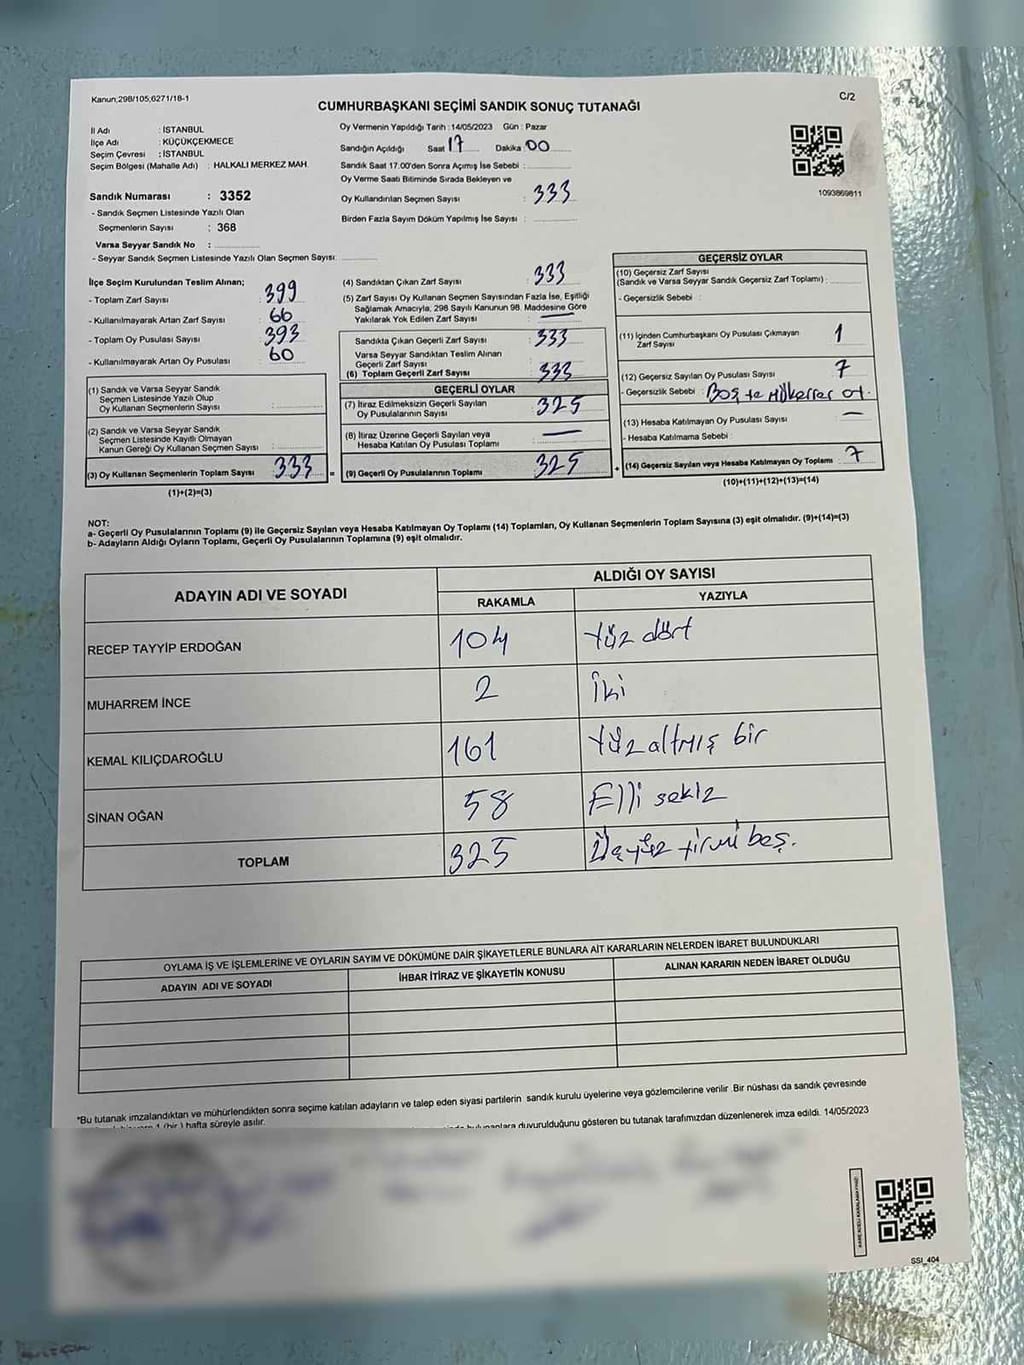 Kanun;298/105;6271/18-1
C/2
CUMHURBAŞKANI SEÇİMİ SANDIK SONUÇ TUTANAĞI
İl Adı : İSTANBUL
İlçe Adı : KÜÇÜKÇEKMECE
Seçim Çevresi : İSTANBUL
Seçim Bölgesi (Mahalle Adı) : HALKALI MERKEZ MAH.
Sandık Numarası : 3352
- Sandık Seçmen Listesinde Yazılı Olan
Seçmenlerin Sayısı : 368
Varsa Seyyar Sandık No :
- Seyyar Sandık Seçmen Listesinde Yazılı Olan Seçmen Sayısı:
Oy Vermenin Yapıldığı Tarih : 14/05/2023 Gün : Pazar
Sandığın Açıldığı Saat 17 Dakika 00
Sandık Saat 17.00'den Sonra Açımış İse Sebebi :
Oy Verme Saati Bitiminde Sırada Bekleyen ve
Oy Kullandırılan Seçmen Sayısı : 333
Birden Fazla Sayım Döküm Yapılmış İse Sayısı :
1093869811
İlçe Seçim Kurulundan Teslim Alınan;
- Toplam Zarf Sayısı : 399
- Kullanılmayarak Artan Zarf Sayısı : 66
- Toplam Oy Pusulası Sayısı : 393
- Kullanılmayarak Artan Oy Pusulası : 60
(1) Sandık ve Varsa Seyyar Sandık
Seçmen Listesinde Yazılı Olup
Oy Kullanan Seçmenlerin Sayısı :
(2) Sandık ve Varsa Seyyar Sandık
Seçmen Listesinde Kayıtlı Olmayan
Kanun Gereği Oy Kullanan Seçmen Sayısı :
(3) Oy Kullanan Seçmenlerin Toplam Sayısı : 333 =
(1)+(2)=(3)
(4) Sandıktan Çıkan Zarf Sayısı : 333
(5) Zarf Sayısı Oy Kullanan Seçmen Sayısından Fazla İse, Eşitliği
Sağlamak Amacıyla, 298 Sayılı Kanunun 98. Maddesine Göre
Yakılarak Yok Edilen Zarf Sayısı : —
Sandıkta Çıkan Geçerli Zarf Sayısı : 333
Varsa Seyyar Sandıktan Teslim Alınan
Geçerli Zarf Sayısı :
(6) Toplam Geçerli Zarf Sayısı : 333
GEÇERLİ OYLAR
(7) İtiraz Edilmeksizin Geçerli Sayılan
Oy Pusulalarının Sayısı : 325
(8) İtiraz Üzerine Geçerli Sayılan veya
Hesaba Katılan Oy Pusulası Toplamı : —
(9) Geçerli Oy Pusulalarının Toplamı : 325 +
GEÇERSİZ OYLAR
(10) Geçersiz Zarf Sayısı
(Sandık ve Varsa Seyyar Sandık Geçersiz Zarf Toplamı) :
- Geçersizlik Sebebi :
(11) İçinden Cumhurbaşkanı Oy Pusulası Çıkmayan
Zarf Sayısı : 1
(12) Geçersiz Sayılan Oy Pusulası Sayısı : 7
- Geçersizlik Sebebi : Boş ve Mükerrer oy.
(13) Hesaba Katılmayan Oy Pusulası Sayısı : —
- Hesaba Katılmama Sebebi :
(14) Geçersiz Sayılan veya Hesaba Katılmayan Oy Toplamı : 7
(10)+(11)+(12)+(13)=(14)
NOT:
a- Geçerli Oy Pusulalarının Toplamı (9) ile Geçersiz Sayılan veya Hesaba Katılmayan Oy Toplamı (14) Toplamları, Oy Kullanan Seçmenlerin Toplam Sayısına (3) eşit olmalıdır. (9)+(14)=(3)
b- Adayların Aldığı Oyların Toplamı, Geçerli Oy Pusulalarının Toplamına (9) eşit olmalıdır.
ADAYIN ADI VE SOYADI
ALDIĞI OY SAYISI
RAKAMLA YAZIYLA
RECEP TAYYİP ERDOĞAN 104 Yüz dört
MUHARREM İNCE 2 İki
KEMAL KILIÇDAROĞLU 161 Yüz altmış bir
SİNAN OĞAN 58 Elli sekiz
TOPLAM 325 Üçyüz yirmi beş.
OYLAMA İŞ VE İŞLEMLERİNE VE OYLARIN SAYIM VE DÖKÜMÜNE DAİR ŞİKAYETLERLE BUNLARA AİT KARARLARIN NELERDEN İBARET BULUNDUKLARI
ADAYIN ADI VE SOYADI İHBAR İTİRAZ VE ŞİKAYETİN KONUSU ALINAN KARARIN NEDEN İBARET OLDUĞU
*Bu tutanak imzalandıktan ve mühürlendikten sonra seçime katılan adayların ve talep eden siyasi partilerin sandık kurulu üyelerine veya gözlemcilerine verilir. Bir nüshası da sandık çevresinde
1 (bir) hafta süreyle asılır. duyurulduğunu gösteren bu tutanak tarafımızdan düzenlenerek imza edildi. 14/05/2023
SSİ_404